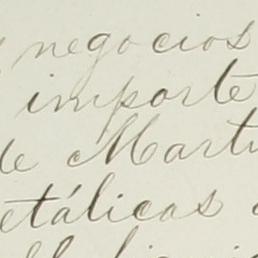 negocios
importe
de Martí
etálicas